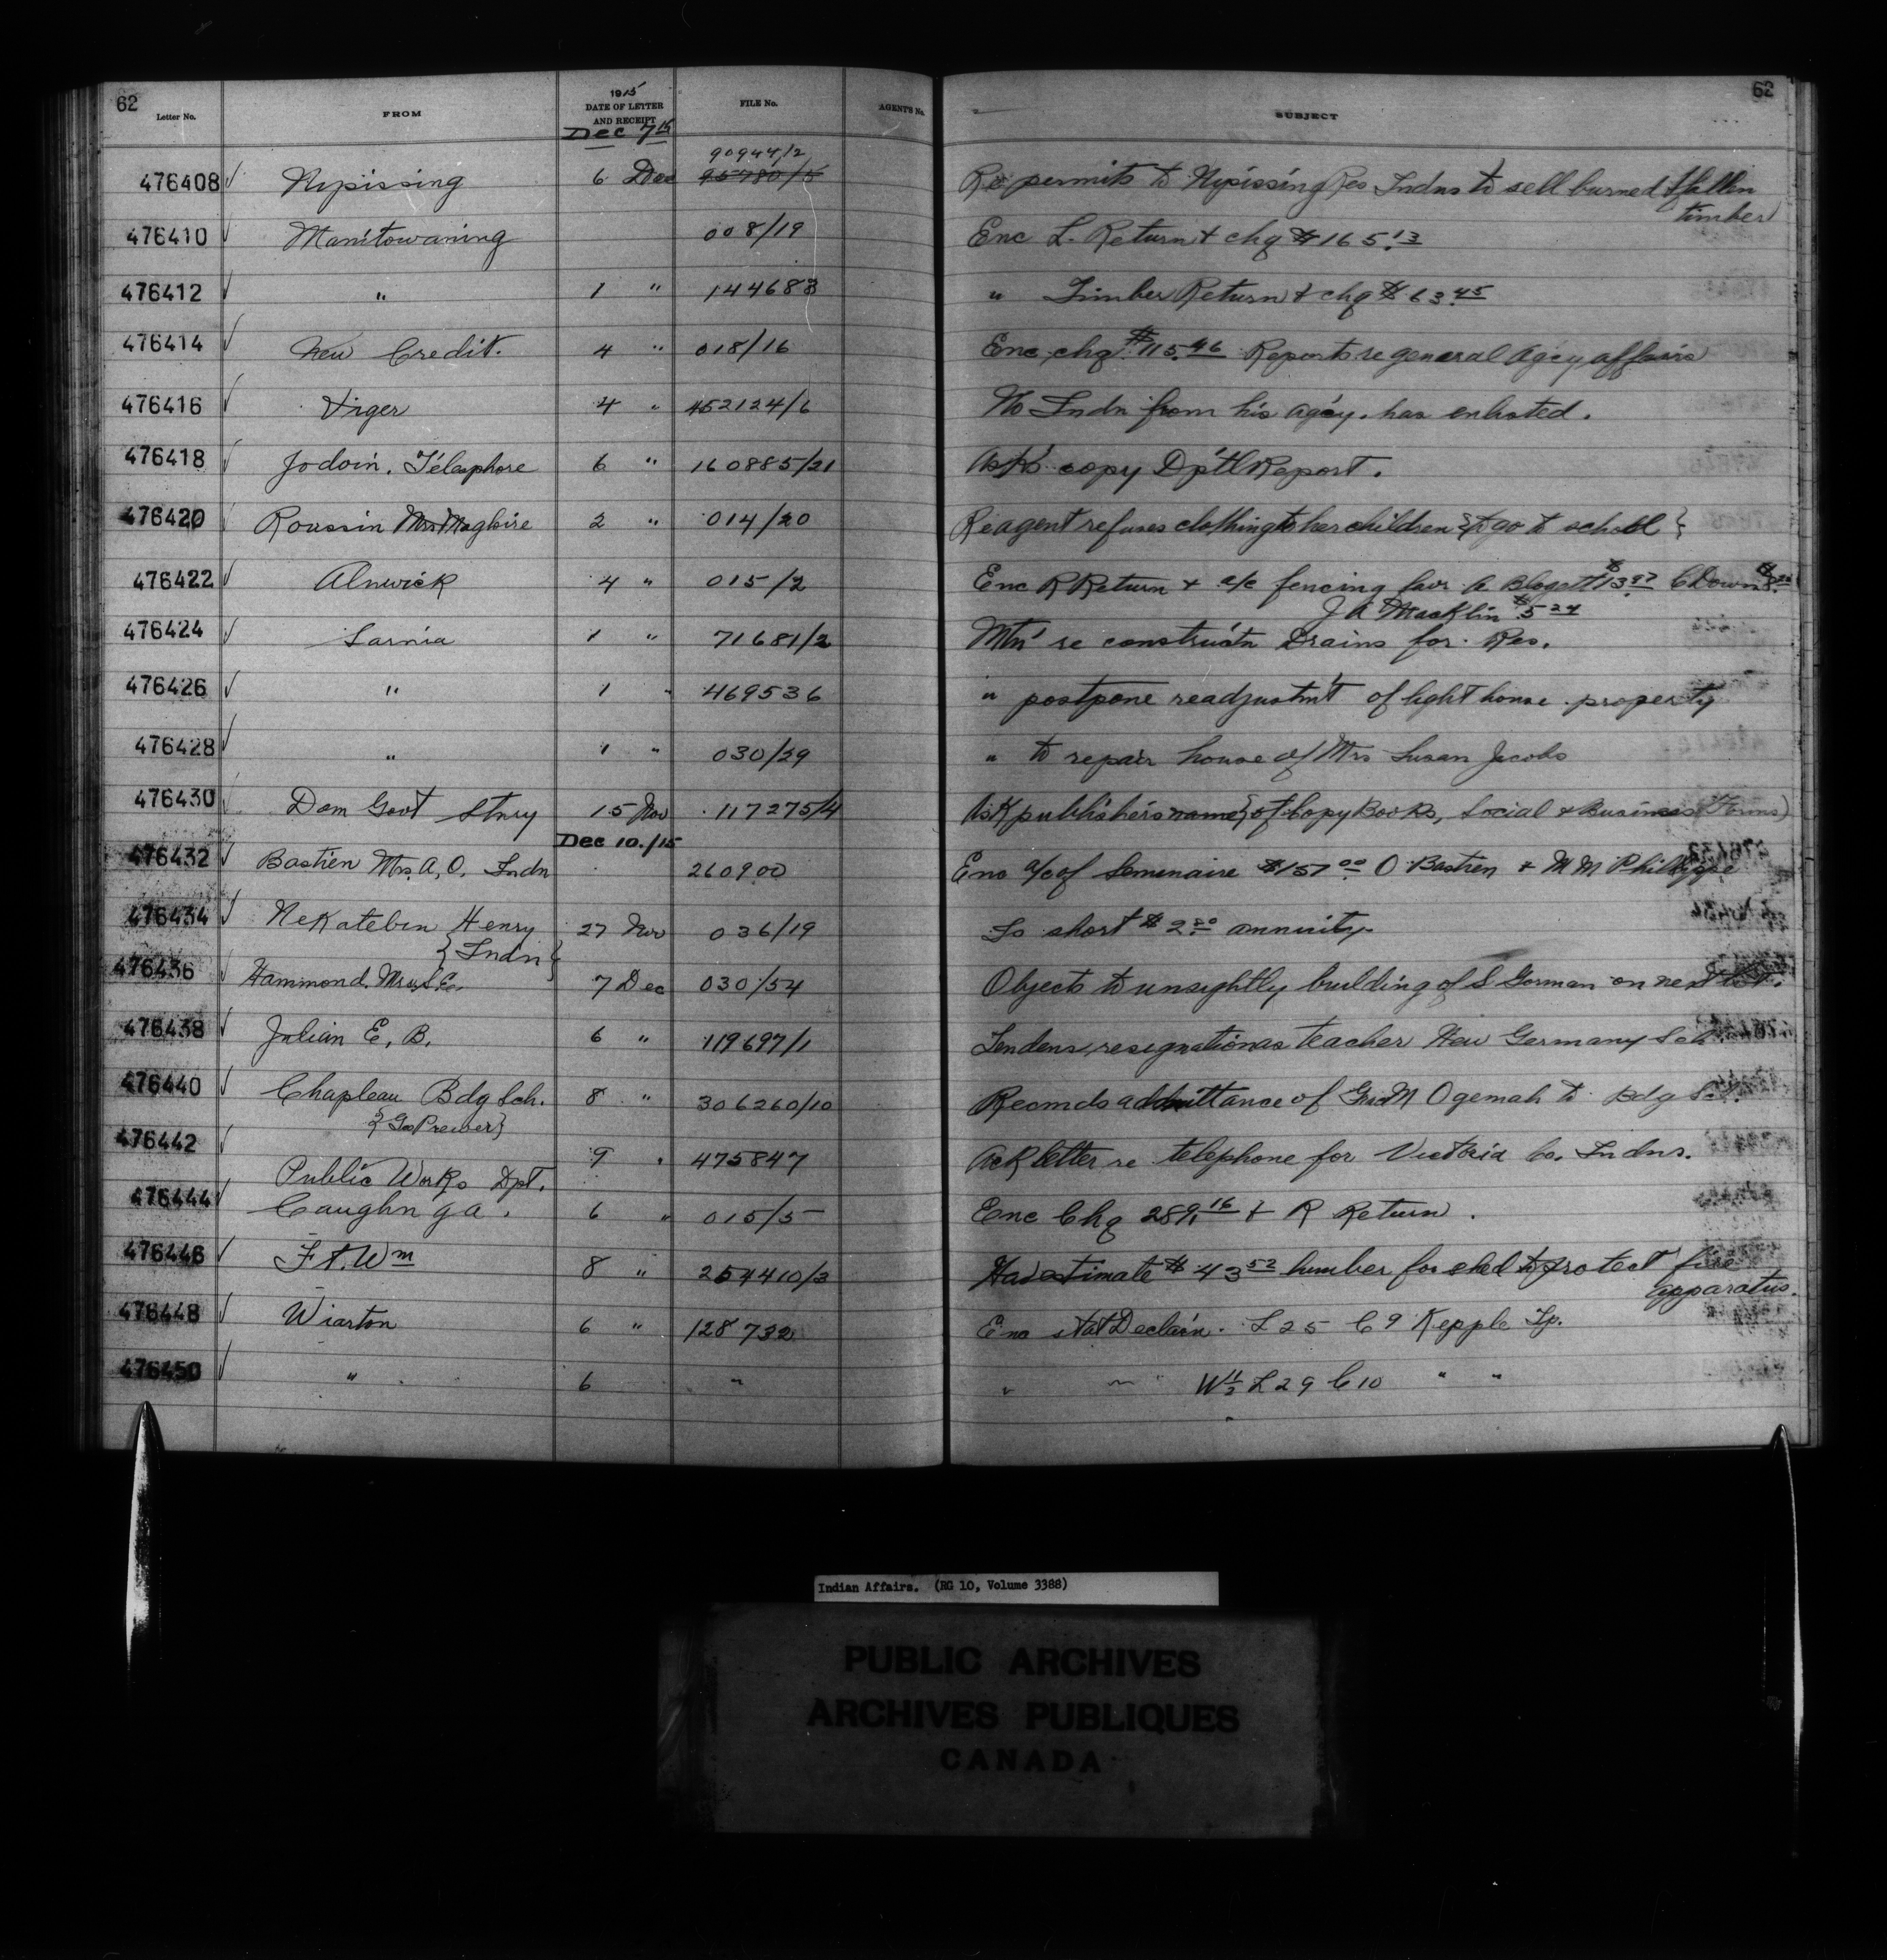 62
Letter No. FROM 1915 DATE OF LETTER AND RECEIPT FILE No. AGENT'S No. SUBJECT 62
Dec 7 15
476408 Nipissing 6 Dec 90944/2 95780/5 Re permits to Nipissing Res Indns to sell burned & fallen
timber
476410 Manitowaning 008/19 Enc L. Return & chq $165.13
476412 " 1 " 144683 " Timber Return & chq $63.45
476414 New Credit. 4 " 018/16 Enc chq $115.46 Reports re general Agcy affairs
476416 Viger 4 " 452124/6 No Indn from his agcy. has enlisted.
476418 Jodoin, Télesphore 6 " 160885/21 Asks copy Dp'tl Report.
476420 Roussin Mrs Magloire 2 " 014/20 Re agent refuses clothing to her children {to go to school}
476422 Alnwick 4 " 015/2 Enc R Return & a/c fencing favr A Blogett $13.97 C Down
J A Macklin $5 24
476424 Sarnia 1 " 71681/2 Mtn' re constructn Drains for Res.
476426 " 1 " 469536 " postpone readjustm't of light house property
476428 " 1 " 030/29 " to repair house of Mrs Susan Jacobs
476430 Dom Govt Stnry 15 Nov 117275/4 Ask publisher's name {of Copy Books, Social & Business Forms}
Dec 10./15
476432 Bastien Mrs. A, O, Indn 260900 Enc a/c of Semenaire $157 00 O Bastien & M M Philippe
476434 Nekatebin Henry 27 Nov 036/19 Is short $2.20 annuity.
{Indn}
476436 Hammond, Mrs S.E. 7 Dec 030/54 Objects to unsightly building of S Gorman on next lot.
476438 Julian E, B, 6 " 119697/1 Tenders resignation as teacher New Germany Sch
476440 Chapleau Bdg Sch. 8 " 306260/10 Recmds admittance of Geo M Ogemah to Bdg Sch.
{Geo Prewer}
476442 Public Works Dpt. 9 " 475847 Ack letter re telephone for Victoria Co. Indns.
476444 Caughn'ga. 6 " 015/5 Enc Chq 289.16 & R Return.
476446 Ft. Wm 8 " 254410/3 Has estimate $43 52 lumber for shed to protect fire
apparatus.
476448 Wiarton 6 " 128732 Enc stat Declar'n. L 25 C 9 Kepple Tp.
476450 " 6 " " " " W 1/2 L 29 C 10 " "
Indian Affairs. (RG 10, Volume 3388)
PUBLIC ARCHIVES
ARCHIVES PUBLIQUES
CANADA